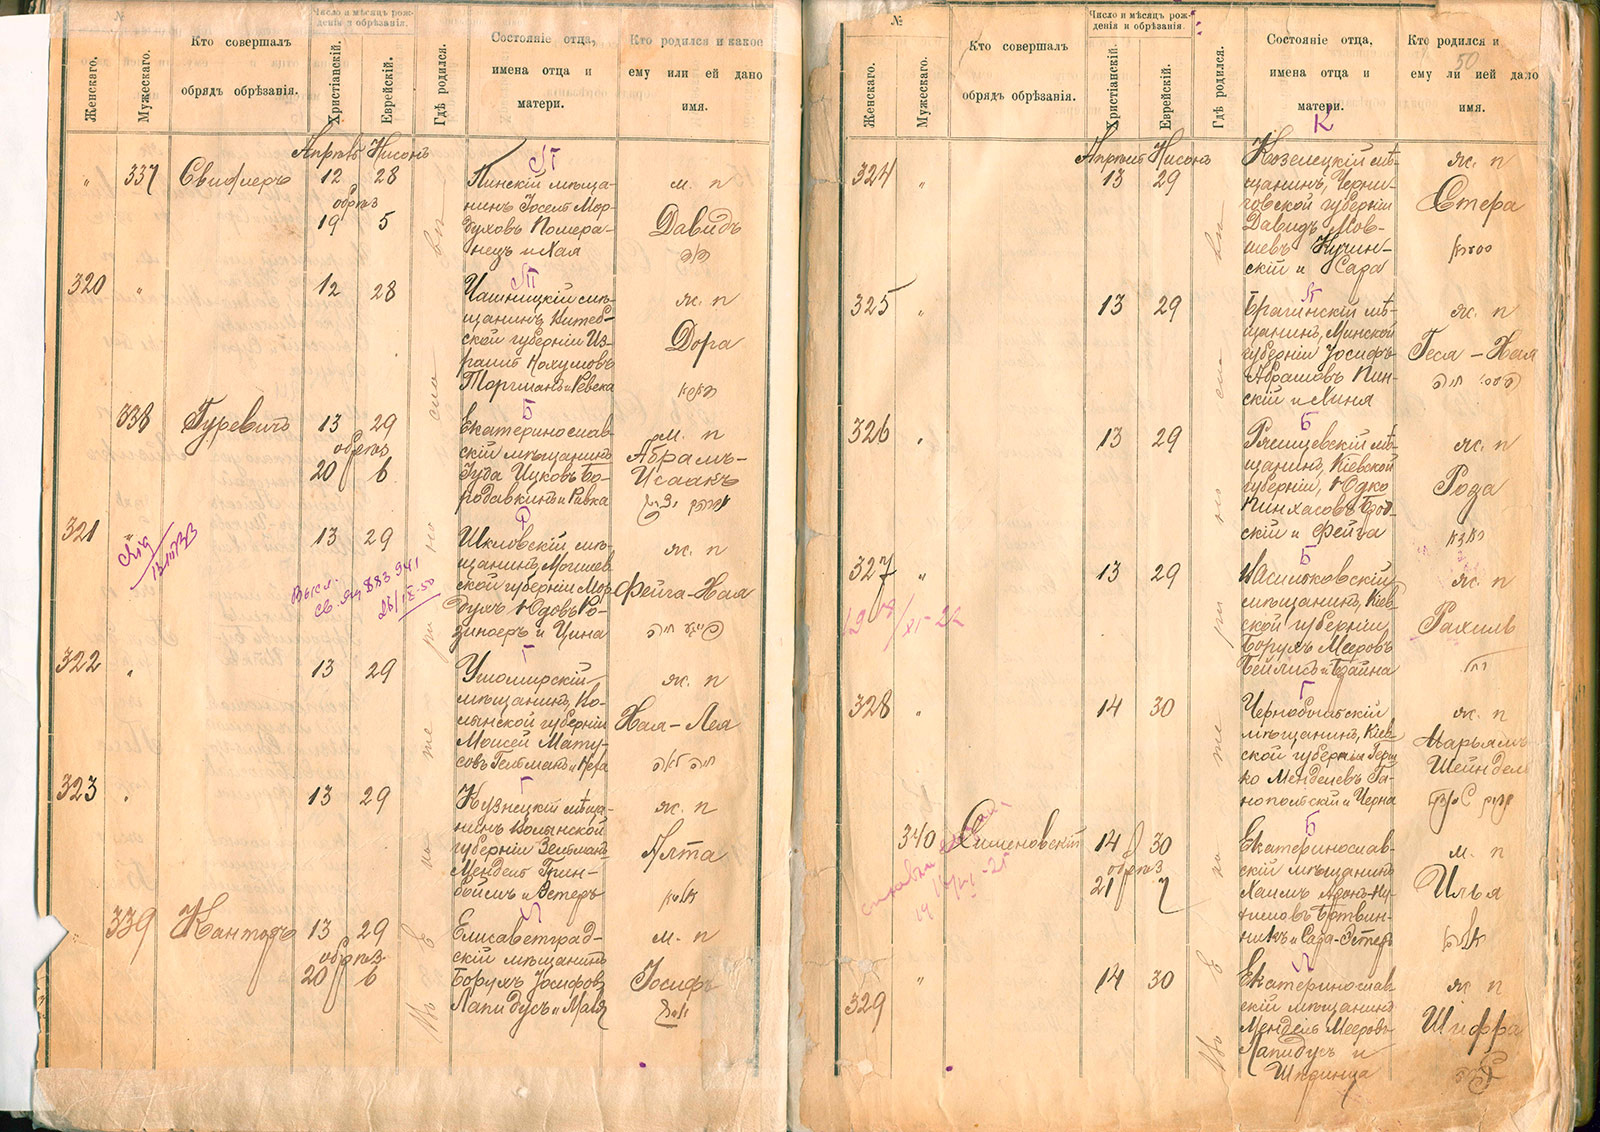 №
Женскаго.
Мужескаго.
Кто совершалъ
обрядъ обрѣзанія.
Число и мѣсяцъ рож-
денія и обрѣзанія.
Христіанскій.
Еврейскій.
Гдѣ родился.
Состояніе отца,
имена отца и
матери.
Кто родился и какое
ему или ей дано
имя.
Апрѣль Нисонъ
" 337 Свифлеръ 12 28
обрѣз
19 5
П
Пинскій мѣща-
нинъ Іосель Мор-
духовъ Помера-
нецъ и Хая
м. п
Давидъ
דוד
320 " 12 28
П
Чашницкій мѣ-
щанинъ Витеб-
ской губерніи Из-
раиль Нохумовъ
Торгманъ и Ревека
ж. п
Дора
338 Гуревичъ 13 29
обрѣз
20 6
Б
Екатеринослав-
скій мѣщанинъ
Іуда Ицковъ Бо-
родавкинъ и Ривка
м. п
Абрамъ-
Исаакъ
אברהם יצחק
321 " 13 29
Р
Шкловскій мѣ-
щанинъ, Могилев-
ской губерніи Мор-
духъ Юдовъ Ро-
зиноеръ и Цина
ж. п
Фейга-Хая
פייגע חיה
Высл.
св. ЯЦ 883941
26/IX-50
322 " 13 29
Г
Ушомирскій
мѣщанинъ, Во-
лынской губерніи
Моисей Мату-
совъ Гельманъ и Кера
ж. п
Хая-Лея
חיה לאה
323 " 13 29
Г
Кузнецкій мѣща-
нинъ Волынской
губерніи Зельманъ
Мендель Грин-
боймъ и Эстеръ
ж. п
Алта
339 Канторъ 13 29
обрѣз
20 6
Л
Елисаветград-
скій мѣщанинъ
Борухъ Іосифовъ
Лапидусъ и Маля
м. п
Іосифъ
יוסף
Въ Е ка те ри но сла вѣ
№
50
Женскаго.
Мужескаго.
Кто совершалъ
обрядъ обрѣзанія.
Число и мѣсяцъ рож-
денія и обрѣзанія
Христіанскій.
Еврейскій.
Гдѣ родился.
Состояніе отца,
имена отца и
матери.
Кто родился и
ему ли ией дано
имя.
Апрѣль Нисонъ
324 " 13 29
К
Козелецкій мѣ-
щанинъ, Черни-
говской губерніи
Давидъ Мов-
шевъ Кучин-
скій и Сара
ж. п
Естера
אסתר
325 " 13 29
П
Брагинскій мѣ-
щанинъ, Минской
губерніи Іосифъ
Абрамовъ Пин-
скій и Линя
ж. п
Геся-Хая
העסי חיה
326 " 13 29
Б
Ржищевскій мѣ-
щанинъ, Кіевской
губерніи, Юдко
Пинхасовъ Брод-
скій и Фейга
ж. п
Роза
ראזא
327 " 13 29
Б
Васильковскій
мѣщанинъ, Кіев-
ской губерніи,
Борухъ Мееровъ
Бейлисъ и Брайна
ж. п
Рахиль
רחל
328 " 14 30
Г
Чернобыльскій
мѣщанинъ, Кіев-
ской губерніи Герш-
ко Менделевъ Га-
нопольскій и Черна
ж. п
Марьямъ-
Шейндель
340 Симоновскій 14 30
обрѣз
21 7
Б
Екатеринослав-
скій мѣщанинъ
Хаимъ Аронъ-Ни-
химовъ Ботвин-
никъ и Сара-Эстеръ
м. п
Илья
אליהו
329 " 14 30
Л
Екатеринослав-
скій мѣщанинъ
Мендель Мееровъ
Лапидусъ и
Шпринца
ж. п
Шифра
Въ Е ка те ри но сла вѣ